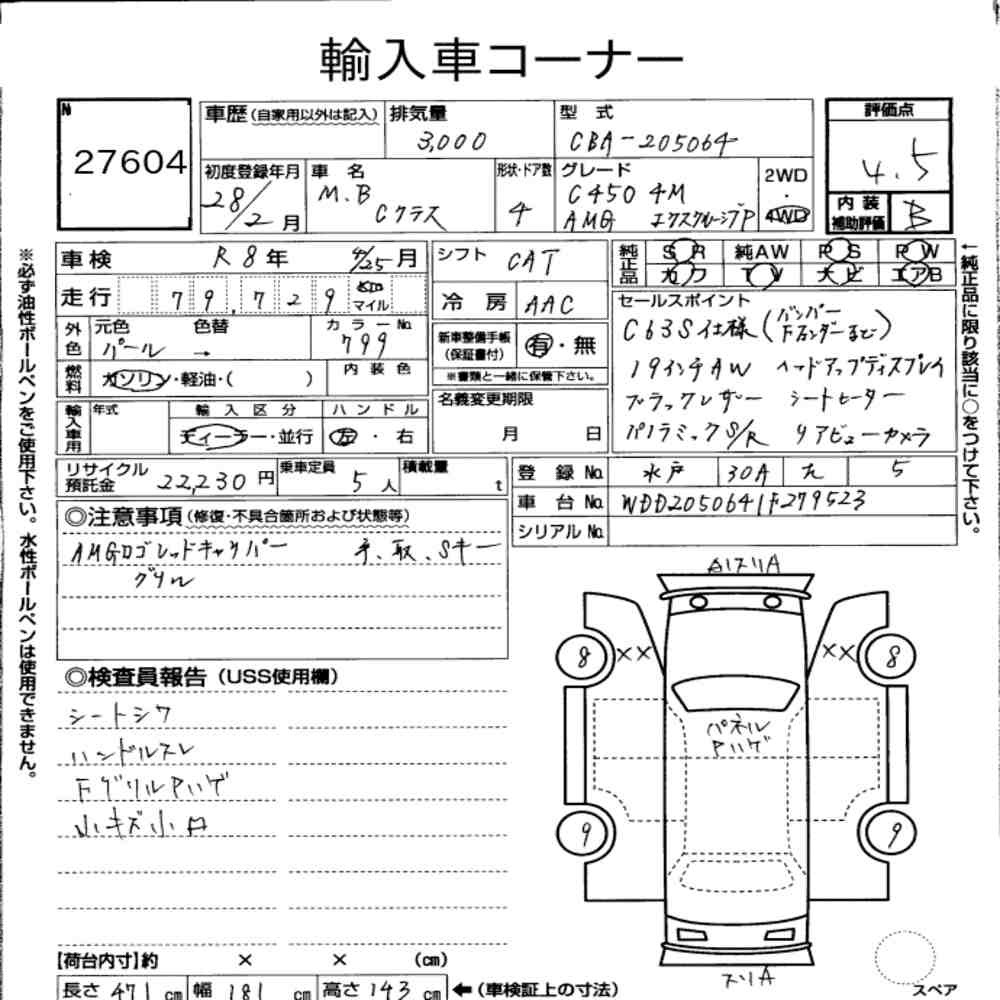 輸入車コーナー
№
27604
車歴(自家用以外は記入)
排気量
3,000
型 式
CBA-205064
評価点
4.5
初度登録年月
28/2月
車 名
M.B
Cクラス
形状・ドア数
4
グレード
C450 4M
AMG エクスクルーシブP
2WD
・
4WD
内 装
補助評価
B
車検 R8年 2/25月
シフト CAT
純正品
SR 純AW PS PW
カワ TV ナビ エアB
走行 79,729 km マイル
冷 房 AAC
セールスポイント
C63S仕様(バンパー Fフェンダーなど)
19インチAW ヘッドアップディスプレイ
ブラックレザー シートヒーター
パノラミックS/R リアビューカメラ
外色
元色 色替 カラーNo.
パール → 799
新車整備手帳
(保証書付)
有・無
※書類と一緒に保管下さい。
燃料
ガソリン・軽油・( )
内 装 色
名義変更期限
月 日
輸入車用
年式
輸 入 区 分
ハ ン ド ル
ディーラー・並行
左 ・ 右
リサイクル
預託金
22,230円
乗車定員
5人
積載量
t
登 録 No. 水戸 30A た 5
車 台 No. WDD2050641F279523
シリアル No.
◎注意事項(修復・不具合箇所および状態等)
AMGロゴレッドキャリパー 手、取、Sキー
グリル
◎検査員報告(USS使用欄)
シートシワ
ハンドルスレ
FグリルPハゲ
小キズ小凹
8
××
××
8
パネル
Pハゲ
9
9
スリA
スペア
【荷台内寸】約 × × (cm)
長さ 471 cm 幅 181 cm 高さ 143 cm ←(車検証上の寸法)
※必ず油性ボールペンをご使用下さい。水性ボールペンは使用できません。
←純正品に限り該当に○をつけて下さい。